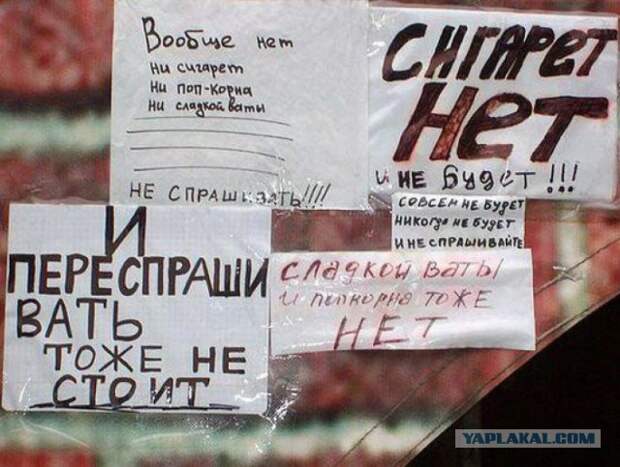 Вообще нет
Ни сигарет
Ни поп-корна
Ни сладкой ваты
НЕ СПРАШИВАТЬ!!!!
СИГАРЕТ
НЕТ
и НЕ будет !!!
СОВСЕМ НЕ БУДЕТ
НИКОГДА НЕ БУДЕТ
И НЕ СПРАШИВАЙТЕ
И
ПЕРЕСПРАШИ
ВАТЬ
ТОЖЕ НЕ
СТОИТ
сладкой ваты
и попкорна тоже
НЕТ
YAPLAKAL.COM